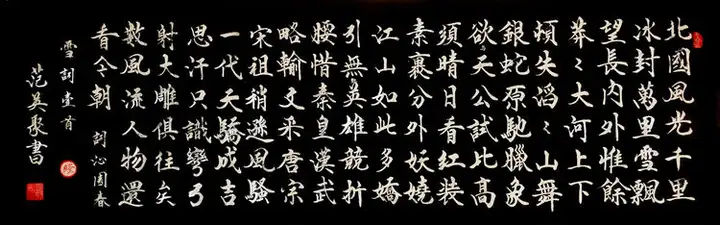 北國風光千里
冰封萬里雪飄
望長內外惟餘
莽〻大河上下
頓失滔〻山舞
銀蛇原馳臘象
欲天公試比高
須晴日看紅裝
素裹分外妖嬈
江山如此多嬌
引無英雄競折
腰惜秦皇漢武
略輸文采唐宗
宋祖稍遜風騷
一代天驕成吉
思汗只識彎弓
射大雕俱往矣
數風流人物還
看今朝
詞沁園春
雪詞壹首
范英聚書